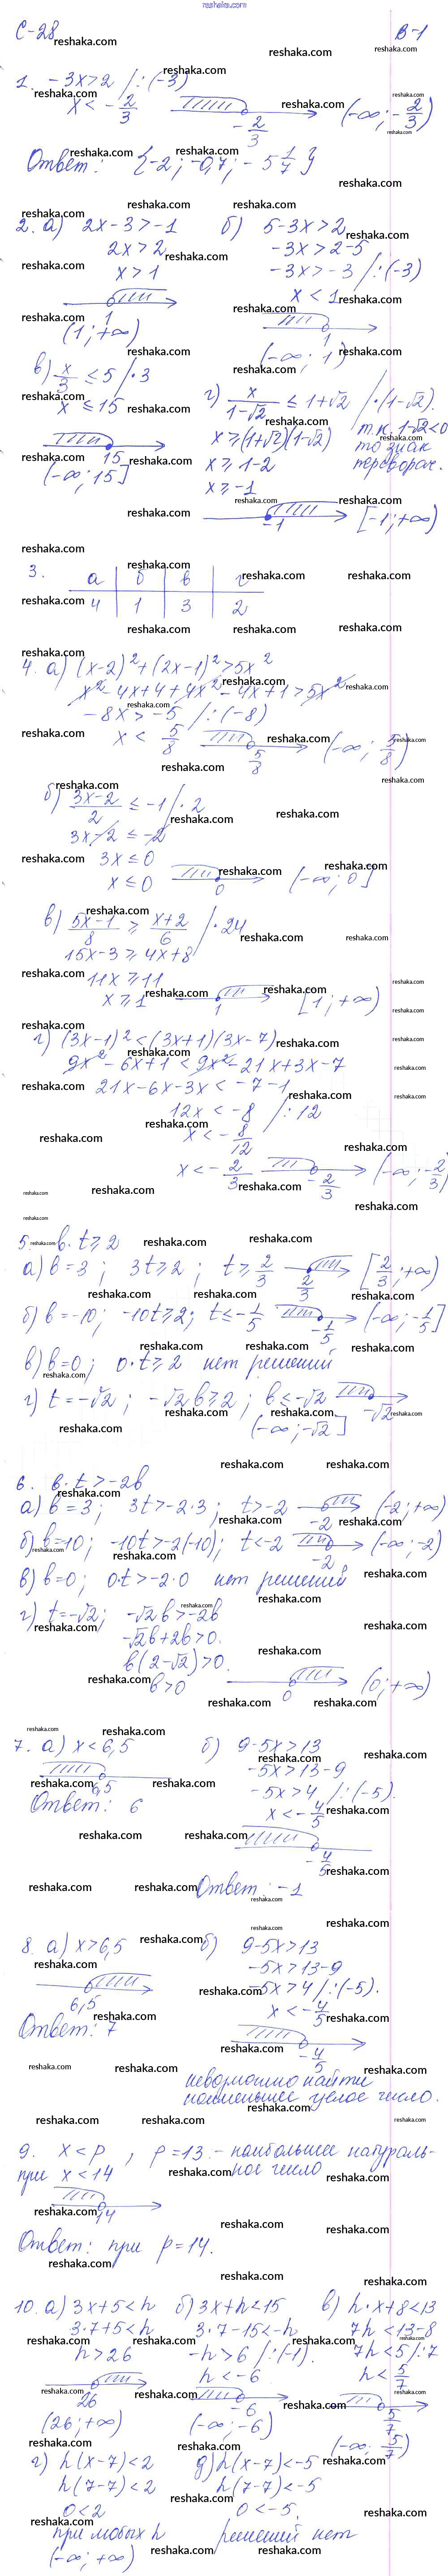 reshaka.com
С-28 В-1
1. -3x>2 /:(-3)
x < -2/3
-2/3
(-∞; -2/3)
Ответ: {-2; -0,7; -5 1/7}
2. а) 2x-3>-1
2x>2
x>1
1
(1; +∞)
б) 5-3x>2
-3x>2-5
-3x>-3 /:(-3)
x<1
1
(-∞; 1)
в) x/3 ≤ 5 /·3
x ≤ 15
15
(-∞; 15]
г) x/(1-√2) ≤ 1+√2 /·(1-√2).
т.к. 1-√2<0
то знак
переворач.
x ≥ (1+√2)(1-√2)
x ≥ 1-2
x ≥ -1
-1
[-1; +∞)
3.
а | б | в | г
4 | 1 | 3 | 2
4. а) (x-2)²+(2x-1)²>5x²
x²-4x+4+4x²-4x+1>5x²
-8x>-5 /:(-8)
x < 5/8
5/8
(-∞; 5/8)
б) (3x-2)/2 ≤ -1 /·2
3x-2 ≤ -2
3x ≤ 0
x ≤ 0
0
(-∞; 0]
в) (5x-1)/8 ≥ (x+2)/6 /·24
15x-3 ≥ 4x+8
11x ≥ 11
x ≥ 1
1
[1; +∞)
г) (3x-1)²<(3x+1)(3x-7)
9x²-6x+1<9x²-21x+3x-7
21x-6x-3x<-7-1
12x<-8 /:12
x<-8/12
x<-2/3
-2/3
(-∞; -2/3)
5. b·t ≥ 2
а) b=3; 3t ≥ 2; t ≥ 2/3
2/3
[2/3; +∞)
б) b=-10; -10t ≥ 2; t ≤ -1/5
-1/5
(-∞; -1/5]
в) b=0; 0·t ≥ 2 нет решений
г) t=-√2; -√2b ≥ 2; b ≤ -√2
-√2
(-∞; -√2]
6. b·t>-2b
а) b=3; 3t>-2·3; t>-2
-2
(-2; +∞)
б) b=10; -10t>-2(-10); t<-2
-2
(-∞; -2)
в) b=0; 0·t>-2·0 нет решений
г) t=-√2; -√2b>-2b
-√2b+2b>0.
b(2-√2)>0.
b>0
0
(0; +∞)
7. а) x<6,5
6,5
Ответ: 6
б) 9-5x>13
-5x>13-9
-5x>4 /:(-5).
x<-4/5
-4/5
Ответ: -1
8. а) x>6,5
6,5
Ответ: 7
б) 9-5x>13
-5x>13-9
-5x>4 /:(-5).
x<-4/5
-4/5
невозможно найти
наименьшее целое число.
9. x<p, p=13 - наибольшее натураль-
ное число
при x<14
14
Ответ: при p=14.
10. а) 3x+5<h
3·7+5<h
h>26
26
(26; +∞)
б) 3x+h<15
3·7-15<-h
-h>6 /:(-1).
h<-6
-6
(-∞; -6)
в) h·x+8<13
7h<13-8
7h<5 /:7
h<5/7
5/7
(-∞; 5/7)
г) h(x-7)<2
h(7-7)<2
0<2
при любых h
(-∞; +∞)
д) h(x-7)<-5
h(7-7)<-5
0<-5.
решений нет